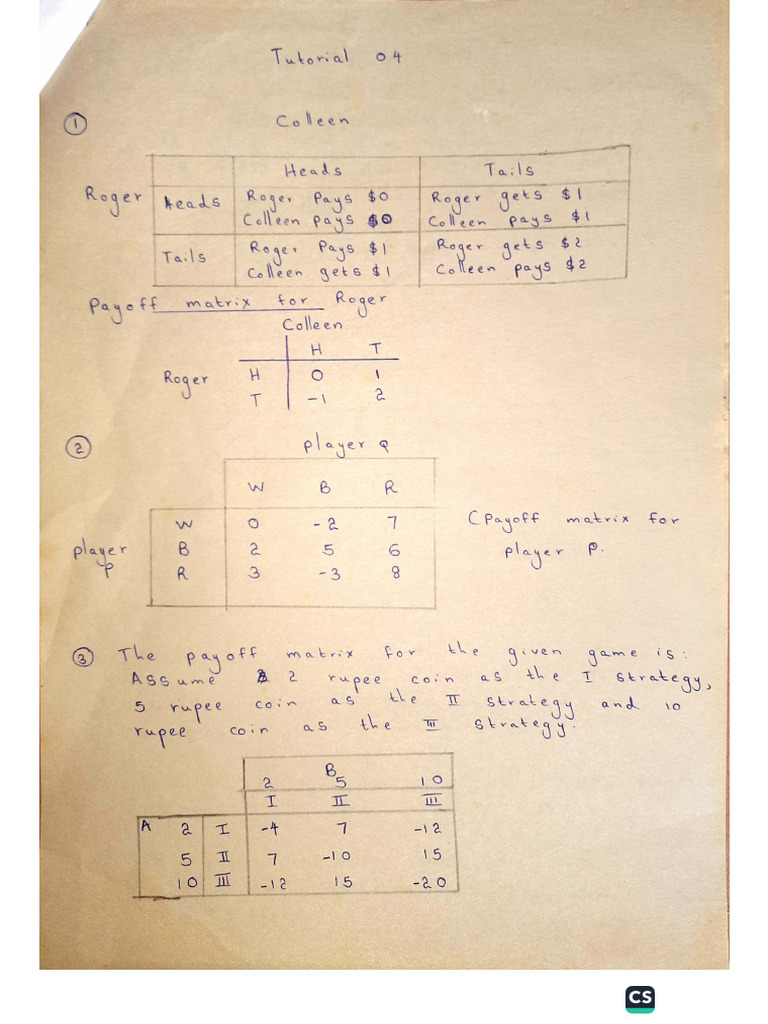 Tutorial 04
① Colleen
Heads Tails
Roger Heads Roger Pays $0 Roger gets $1
Colleen pays $0 Colleen pays $1
Tails Roger Pays $1 Roger gets $2
Colleen gets $1 Colleen pays $2
Payoff matrix for Roger
Colleen
H T
Roger H 0 1
T -1 2
② player Q
W B R
W 0 -2 7
player P B 2 5 6
R 3 -3 8
(Payoff matrix for
player P.
③ The payoff matrix for the given game is:
Assume 2 rupee coin as the I strategy,
5 rupee coin as the II strategy and 10
rupee coin as the III strategy.
B
2 5 10
I II III
A 2 I -4 7 -12
5 II 7 -10 15
10 III -12 15 -20
CS